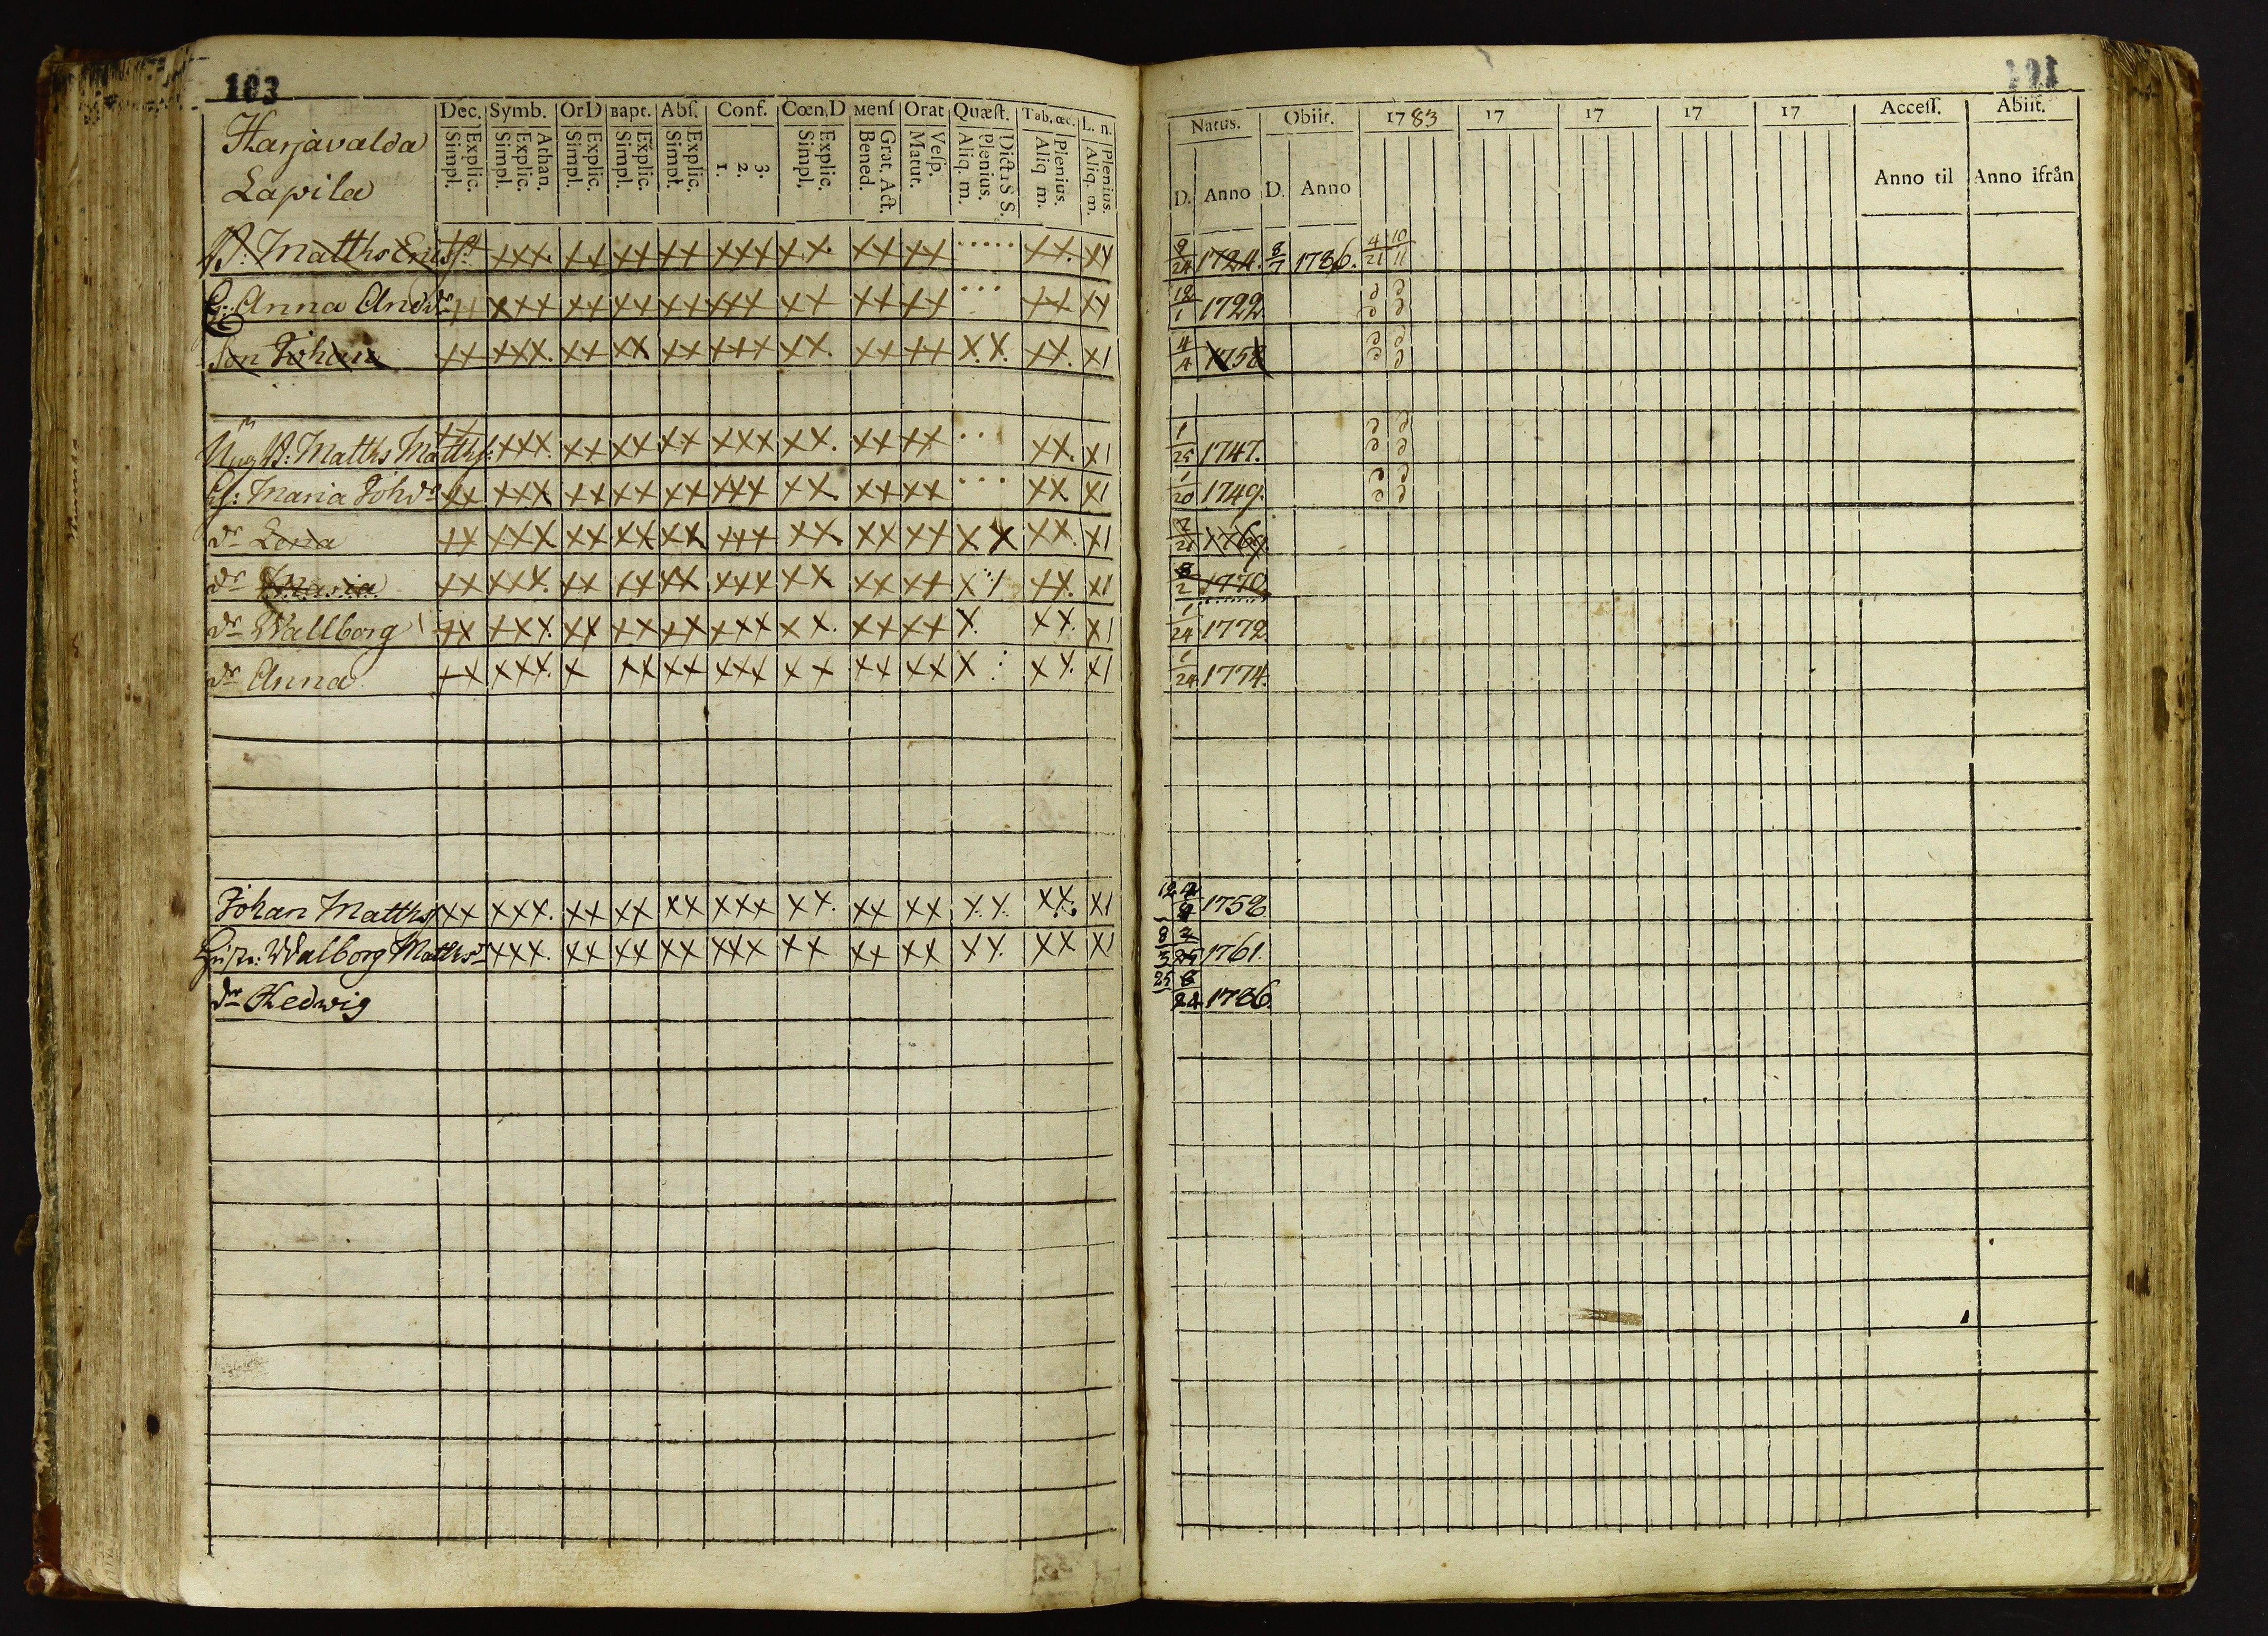 103
Harjavalda
Lapila
Dec. Symb. OrD Bapt. Abſ. Conf. Cœn.D Menſ Orat Quæſt. Tab. œc. L. n.
Explic. Simpl.
Athan. Explic. Simpl.
Explic. Simpl.
Explic. Simpl.
Explic. Simpl.
3. 2. 1.
Explic. Simpl.
Grat. Act. Bened.
Veſp. Matut.
Dict. S S. Plenius. Aliq. m.
Plenius. Aliq m.
Plenius. Aliq. m.
B: Matths Ericsſ:
xxx. xx xx xx xxx xx. xx xx xx. xx
H: Anna And dr
xx xxx xx xx xx xxx xx xx xx xx xx
Son Johan xx xxx. xx xx xx xxx xx. xx xx x.x. xx. x1
Mâg B: Matths Matthſ: xxx xx xx xx xxx xx. xx xx xx. x1
H: Maria Joh dr xx xxx xx xx xx xxx xx xx xx xx x1
dr Lena xx xxx xx xx xx xxx xx. xx xx x x xx. x1
dr Maria xx xxx. xx xx xx xxx xx xx xx x xx. x1
dr Wallborg xx xxx xx xx xx xxx xx. xx xx x. xx. x1
dr Anna xx xxx. x xx xx xxx xx xx xx x xx. x1
Johan Matthsſ xx xxx. xx xx xx xxx xx. xx xx xx. xx. x1
Hust: Walborg Mattsdr xxx. xx xx xx xxx xx xx xx xx. xx x1
dr Hedwig
104
Natus. Obiit. 1783 17 17 17 17 Acceſſ. Abiit.
D. Anno D. Anno Anno til Anno ifrån
9/24 1724. 8/7 1786. 4/21 10/11
12/1 1722
4/4 1758
1/25 1747.
1/20 1749.
2/21 1769.
8/2 1770.
1/24 1772
1/24 1774.
1758
1761.
1786.